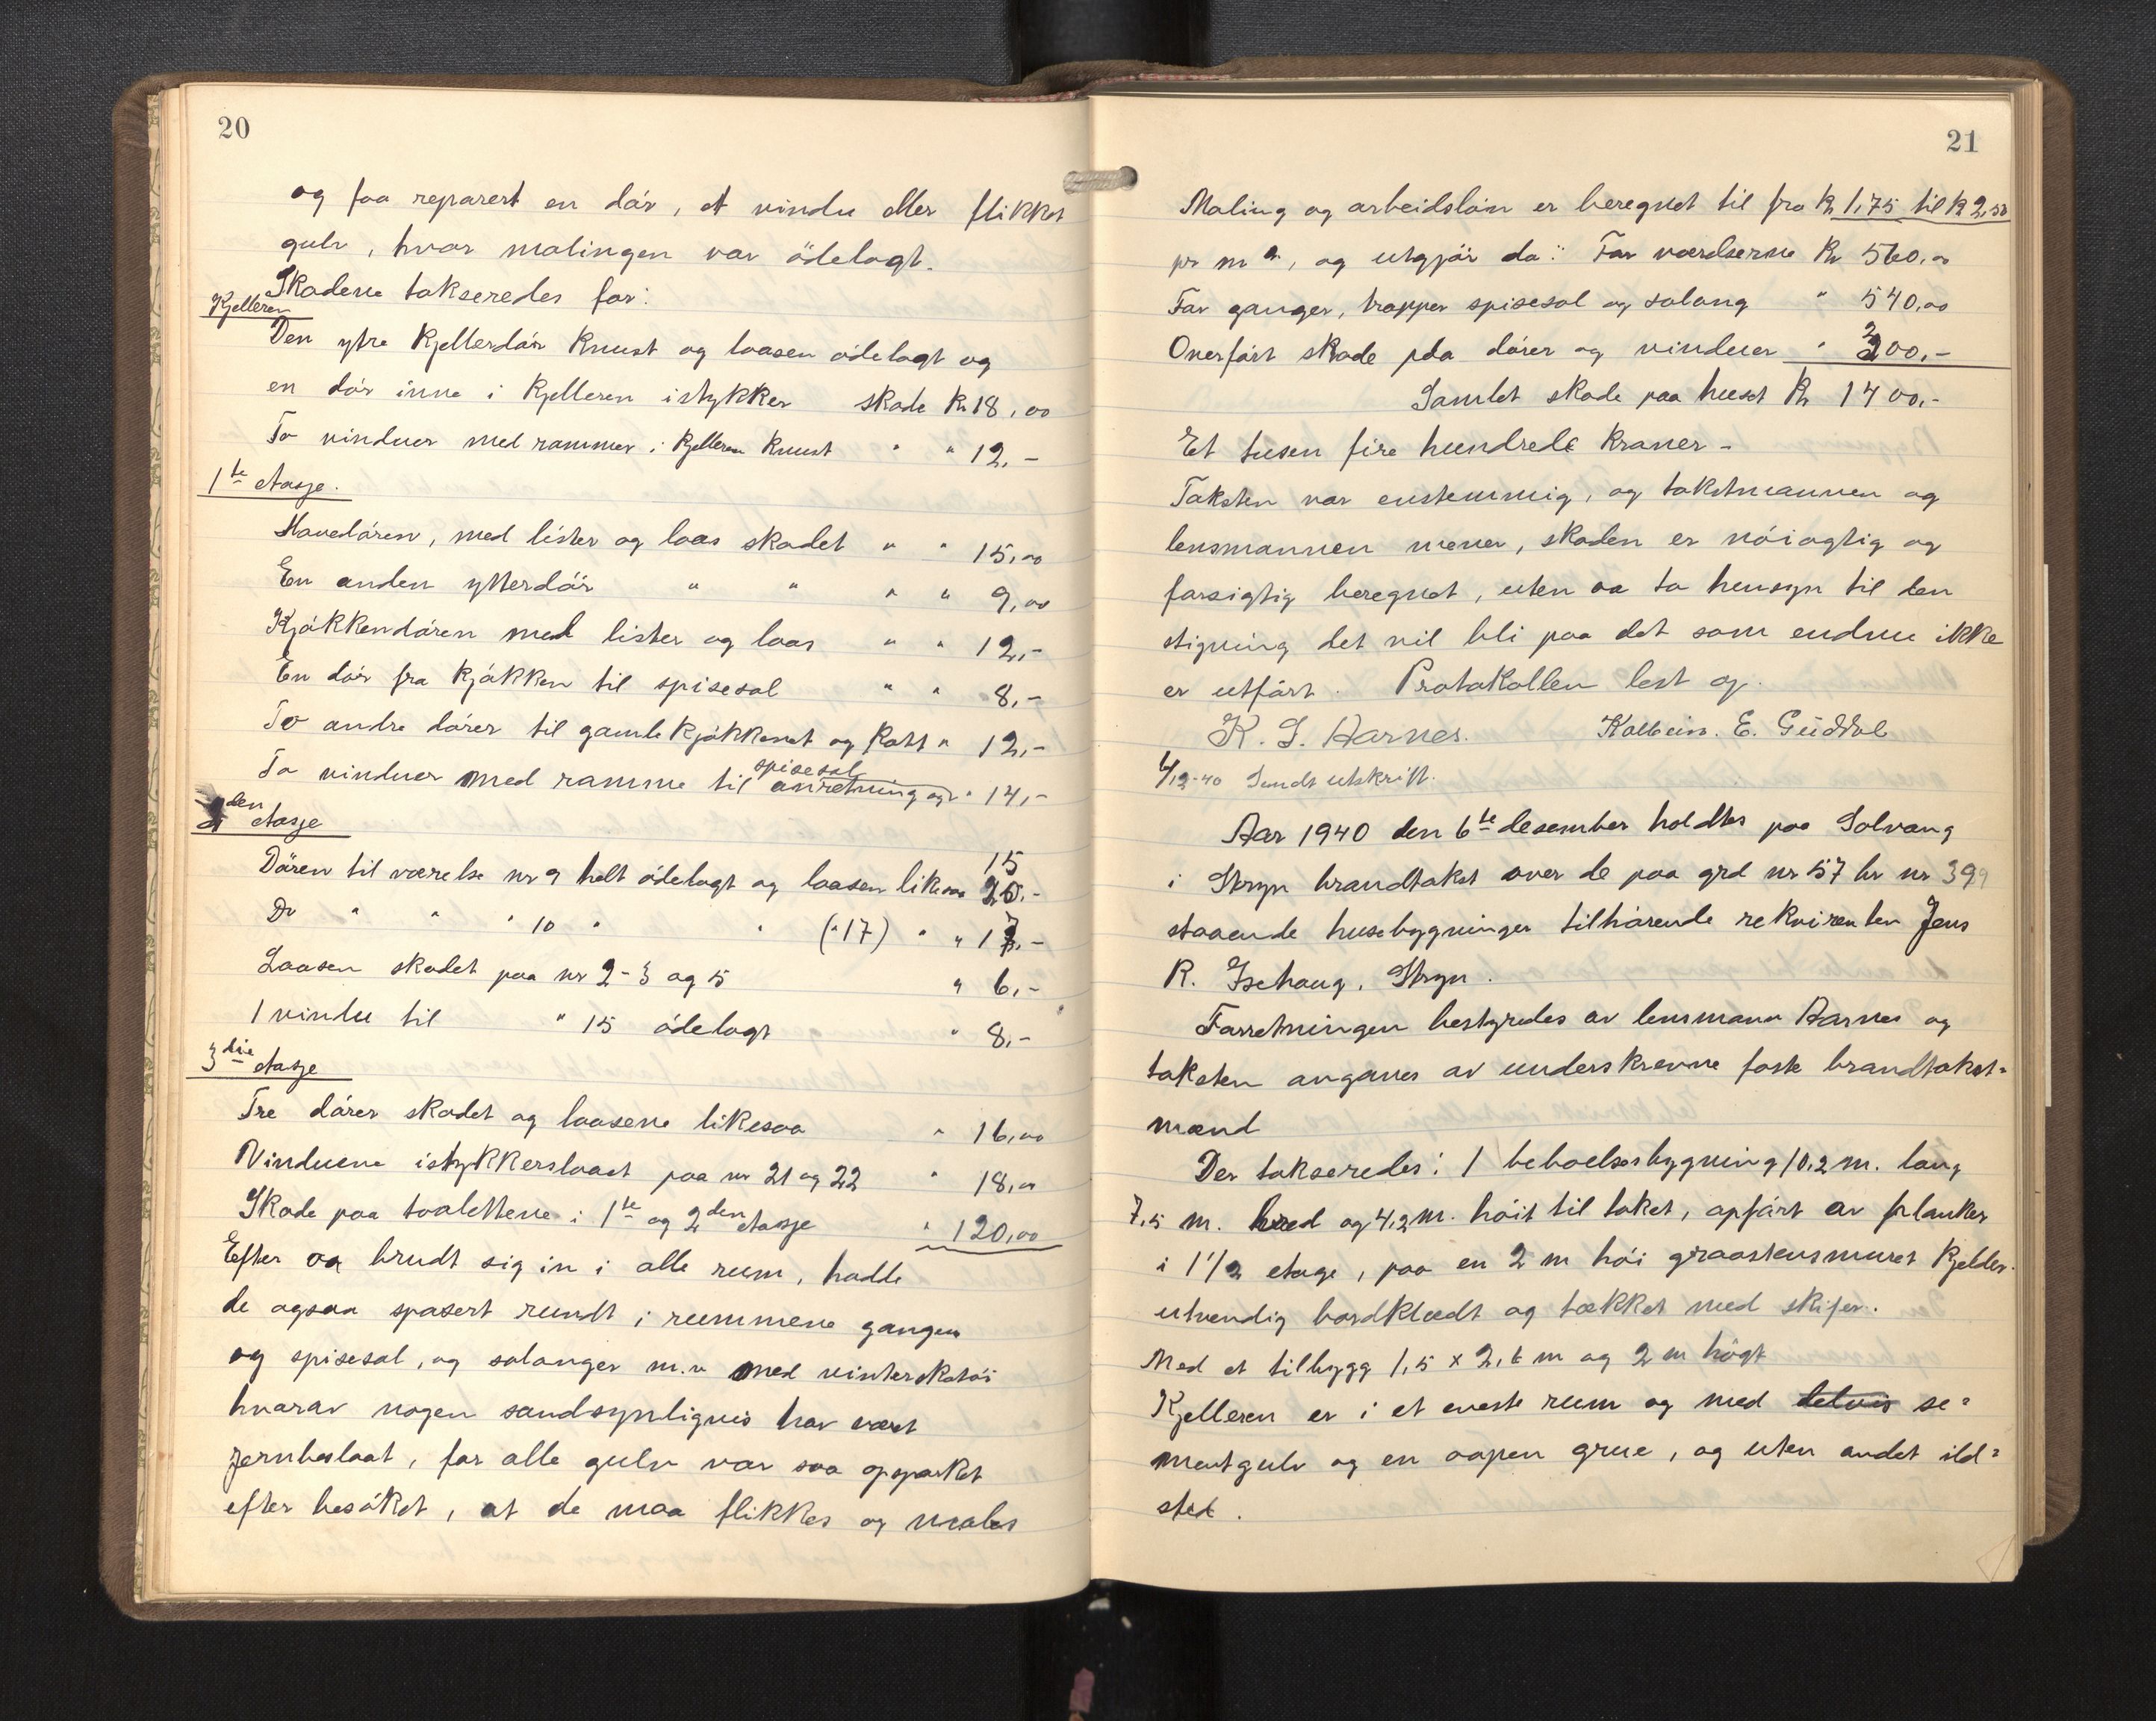 20
og faa reparert en dör, et vindu eller flikket
gulv, hvor malingen var ödelagt.
Skadene takseredes for:
Kjelleren
Den ytre Kjellerdör Knust og laasen ödelagt og
en dör inne i Kjelleren istykker skade Kr 18,00
To vinduer med rammer i Kjelleren Knust " " 12,-
1te etasje.
Havedören, med lister og laas skadet " " 15,00
En anden ytterdör " " " " 9,00
Kjökkendören med lister og laas " " 12,-
En dör fra Kjökken til spisesal " " 8,-
To andre dörer til gamle Kjökkenet og Kott " 12,-
To vinduer med ramme til spisesal anretning og " 14,-
2den etasje
Dören til værelse nr 9 helt ödelagt og laasen likesaa 15 20,-
Do " " " 10 " " ("17) " " 17,-
Laasen skadet paa nr 2-3 og 5 " 6,-
1 vindu til " 15 ödelagt " 8,-
3die etasje
Tre dörer skadet og laasene likesaa " 16,00
Vinduene istykkerslaaet paa nr 21 og 22 " 18,00
Skade paa toalettene i 1te og 2den etasje " 120,00
Efter aa brudt sig in i alle rum, hadde
de ogsaa spasert rundt i rummene gangen
og spisesal, og salonger m.v med vinterskotöi
hvorav nogen sandsynligvis har været
jernbeslaat, for alle gulv var saa opsparket
efter besöket, at de maa flikkes og males
21
Maling og arbeidslön er beregnet til fra Kr 1,75 til Kr 2,50
pr m2, og utgjör da: For værelserne Kr 560,00
For ganger, trapper spisesal og salong " 540,00
Overfört skade paa dörer og vinduer " 300,-
Samlet skade paa huset Kr 1400,-
Et tusen fire hundrede Kroner -
Taksten var enstemmig, og takstmannen og
lensmannen mener, skaden er nöiagtig og
forsigtig beregnet, uten aa ta hensyn til den
stigning det vil bli paa det som endnu ikke
er utfört. Protokollen lest op.
K. S. Aarnes. Kolbein. E. Guddal
6/12-40 Sendt utskrift.
Aar 1940 den 6te desember holdtes paa Solvang
i Stryn brandtakst over de paa grd nr 57 br nr 399
staaende husebygninger tilhörende rekvirenten Jens
R. Isehaug, Stryn.
Forretningen bestyredes av lensmann Aarnes og
taksten avgaves av underskrevne faste brandtakst-
mænd
Der takseredes: 1 beboelsesbygning 10,2 m. lang
7,5 m. bred og 4,2 m. höit til taket, opfört av planker
i 1 1/2 etage, paa en 2 m höi graastensmuret Kjelder.
utvendig bordklædt og tækket med skifer.
Med et tilbygg 1,5 x 2,6 m og 2 m högt
Kjelleren er i et eneste rum og med delvis se=
mentgulv og en aapen grue, og uten andet ild=
sted.